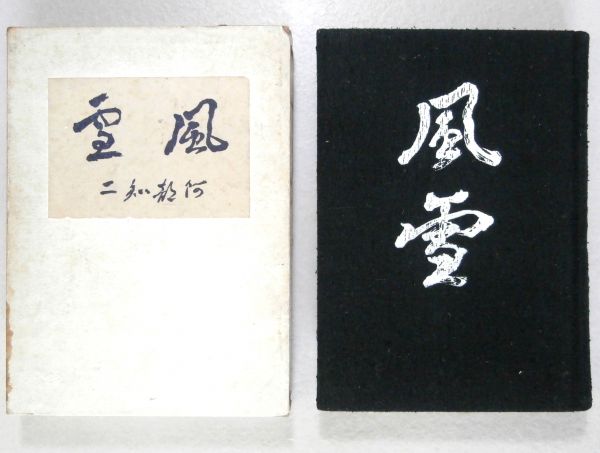 風雪
阿部知二
風雪